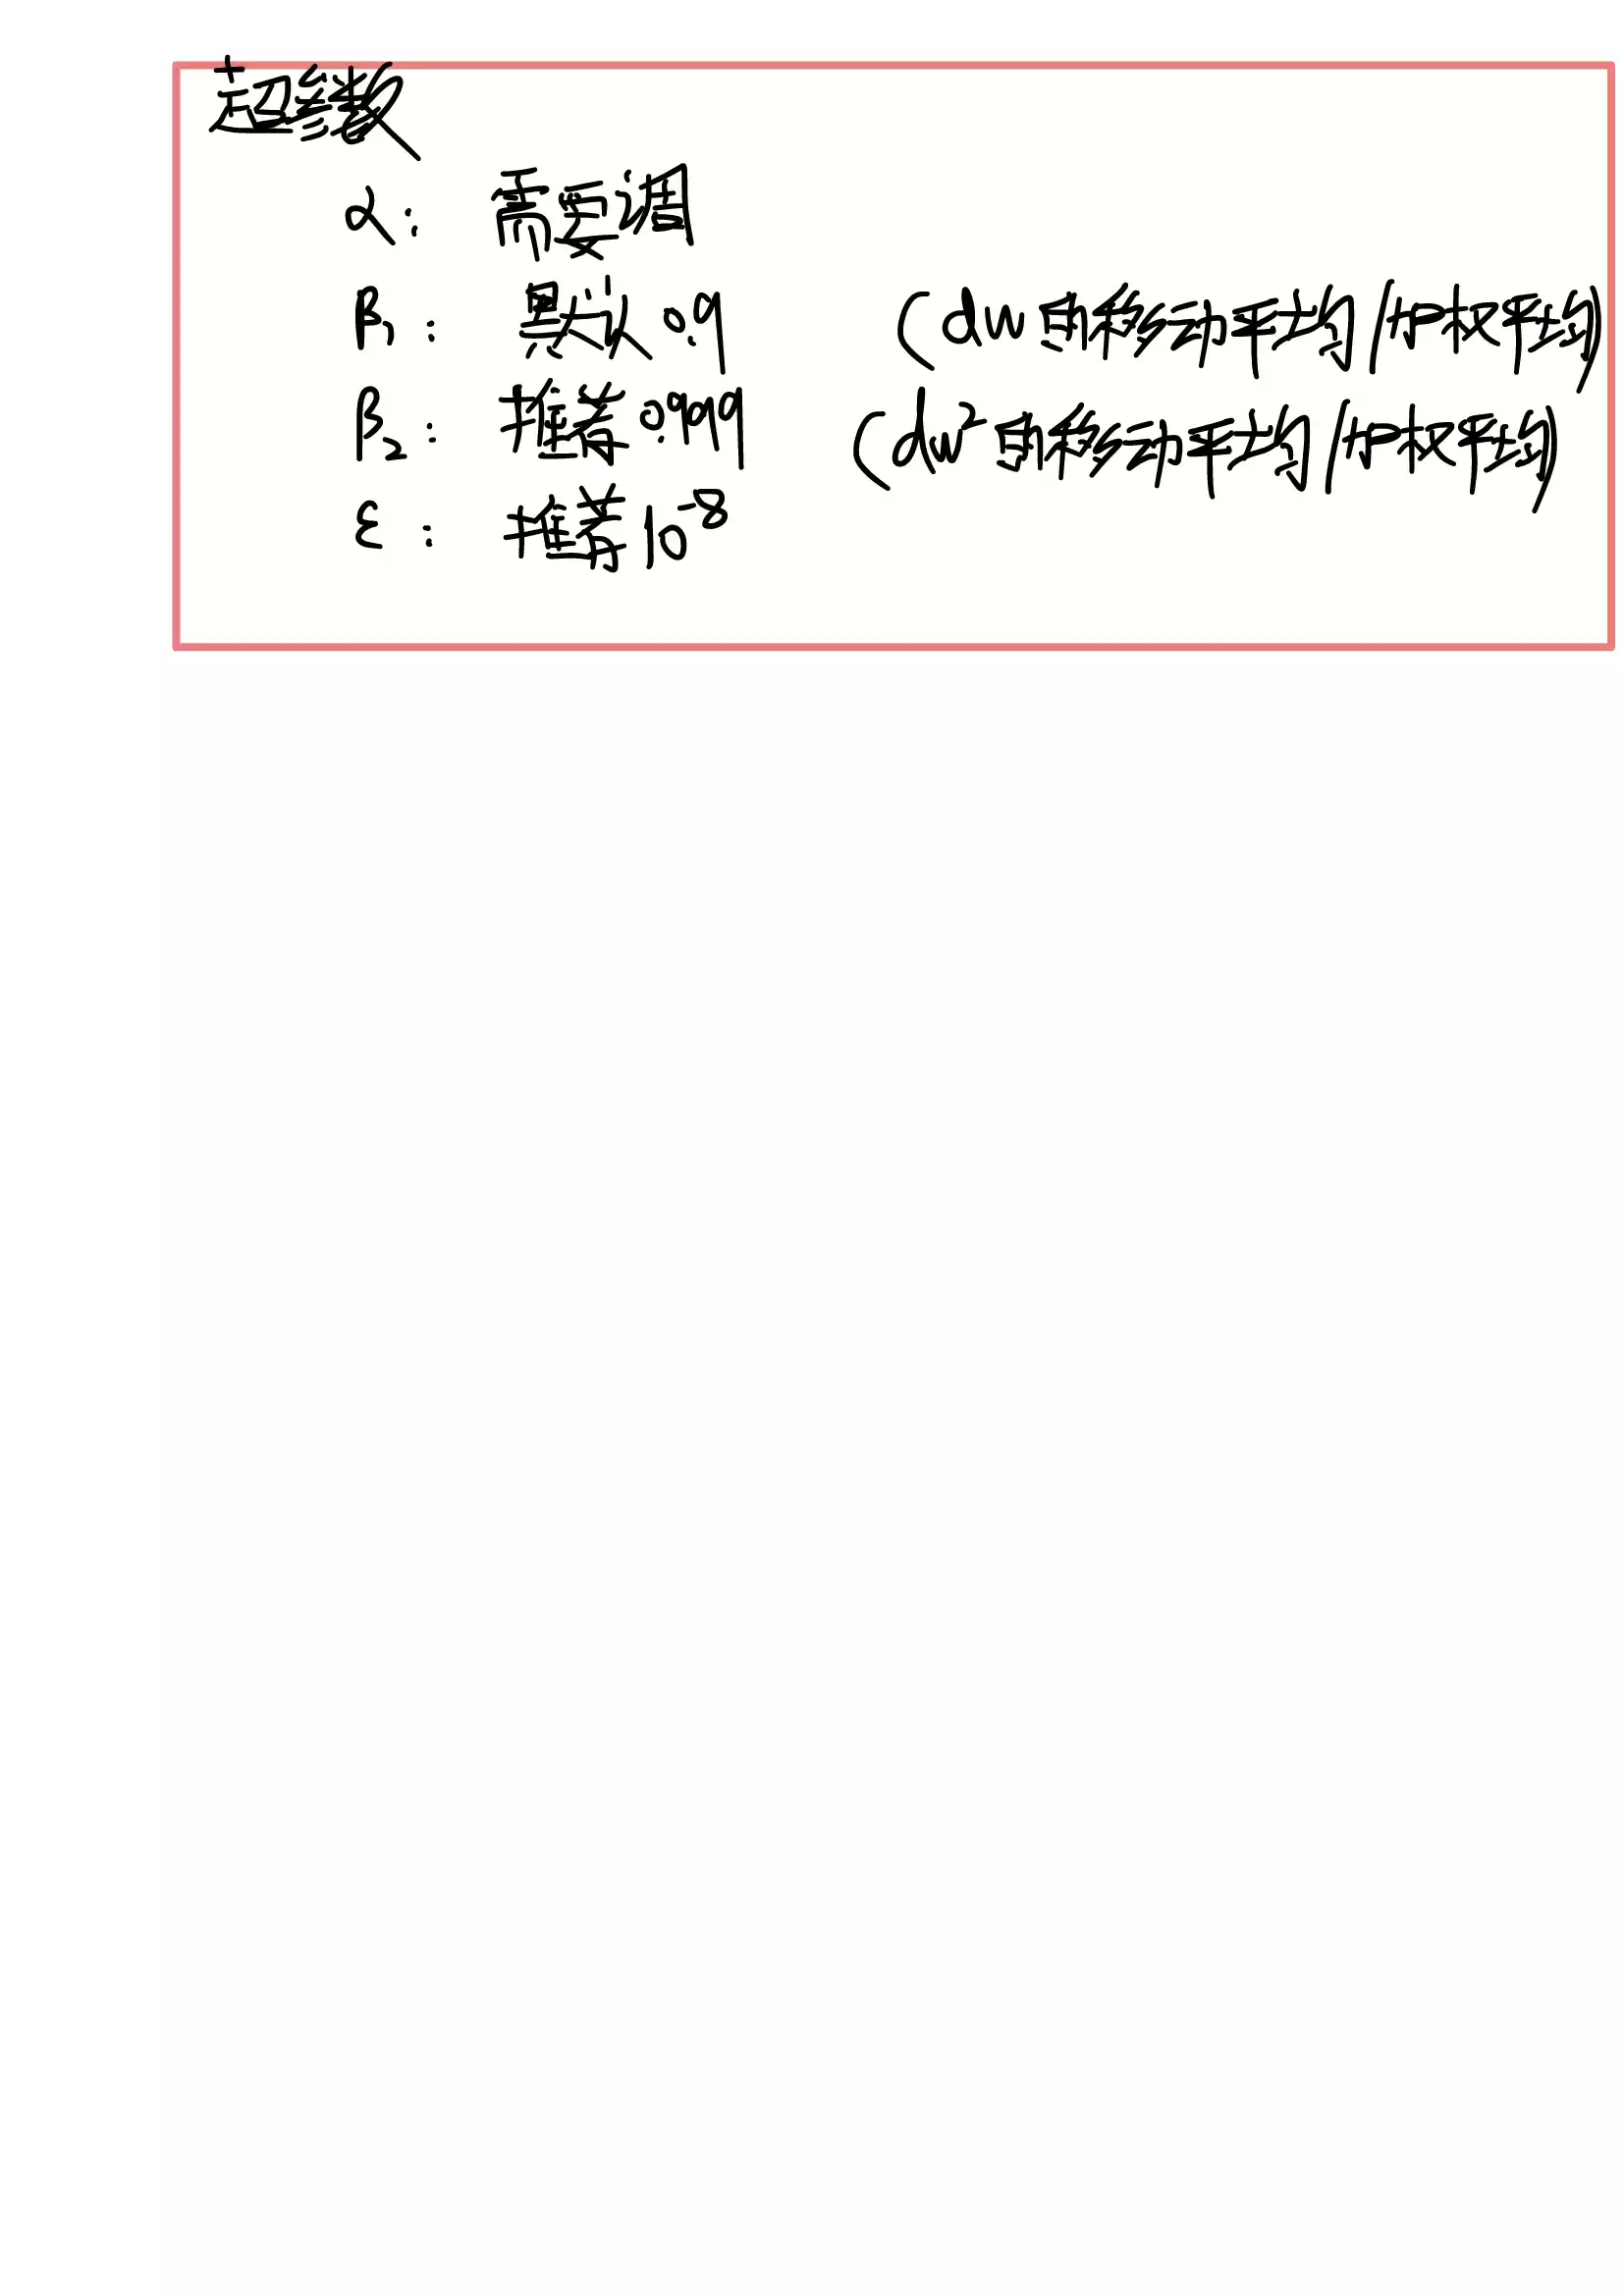 超参数
α: 需要调
β₁: 默认0.9 (dw的移动平均/加权平均)
β₂: 推荐0.999 (dw²的移动平均/加权平均)
ε: 推荐10⁻⁸